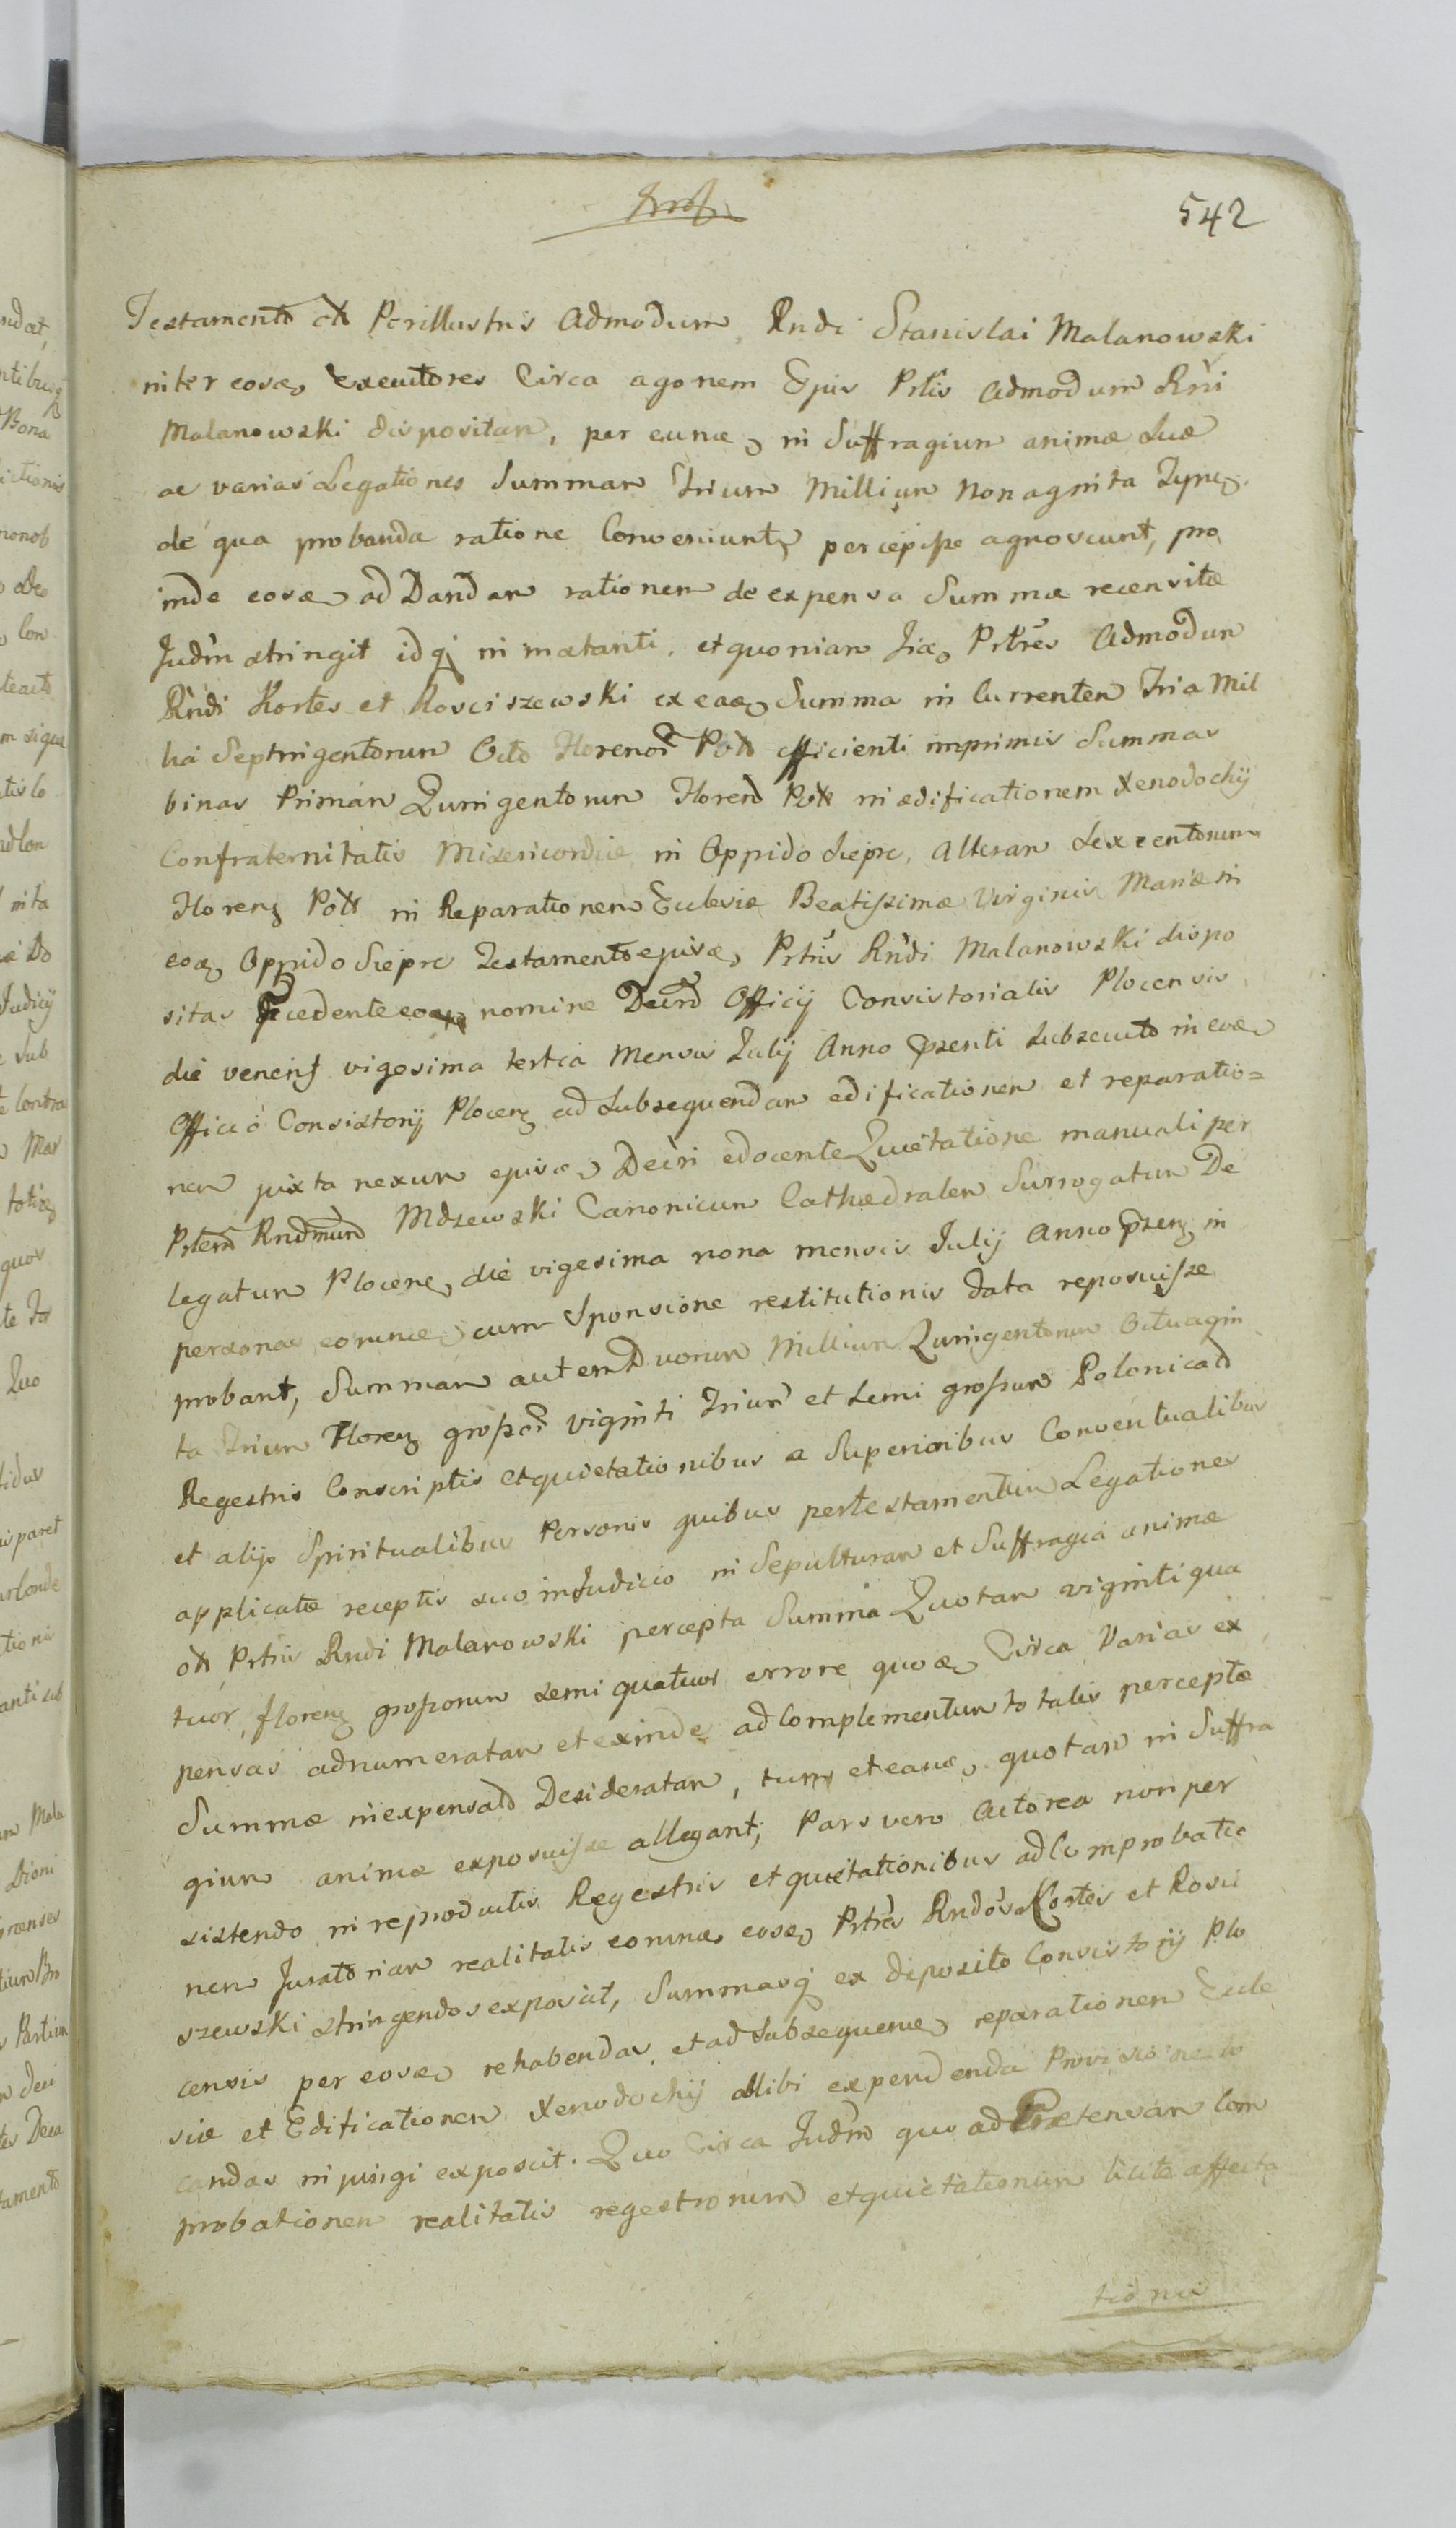 542
Testamento olt Perillustris Admodum Rndi Stanislai Malanowski
inter eosq executores Circa agonem Ejus Prlis Admodum Rndi
Malanowski dispositam, per eunq in Suffragium animæ suæ
ac varias Legationes Summam Trium Millium Nonaginta Tynf.
de qua probanda ratione Conveniunt, percepisse agnoscunt, pro
inde eosq ad Dandam rationem de expensa Summæ recensitæ
Judm stringit idq in instanti, et quoniam iiq Prtres Admodum
Rndi Kortes et Kosciszewski ex eaq Summa in Currentem Tria Mil
lia Septingentorum Octo Florenor Poll efficienti imprimis Summas
binas Primam Quingentorum Floren Poll in ædificationem Xenodochij
Confraternitatis Misericordiæ in Oppido Sieprc, Alteram Sexcentorum
Floren Poll in Reparationem Ecclesiæ Beatissimæ Virginis Mariæ in
eoq Oppido Sieprc Testamento ejusq Prtris Rndi Malanowski dispo
sitas Præcedente eoq nomine Decreto Officij Consistorialis Plocensis
die veneris vigesima tertia Mensis Julij Anno præsenti subsecuto in eoq
Officio Consistorij Plocen ad subsequendam edificationem et reparatio=
nem juxta nexum ejusq Decri edocente Quietatione manuali per
Prtrem Rndmum Mdzewski Canonicum Cathedralem Surrogatum De
legatum Plocenq die vigesima nona mensis Julij Anno præsen in
personas eorunq cum Sponsione restitutionis data reposuisse
probant, Summam autem Duorum Millium Quingentorum Octuagin
ta Trium Floren grossor viginti Trium et Semi grossum Polonicad
Regestris Conscriptis et quietationibus a Superioribus Conventualibus
et alijs Spiritualibus Personis quibus per testamentum Legationes
applicatæ receptis suo in Judicio in Sepulturam et Suffragia animæ
olt Prtris Rndi Malanowski percepta Summa Quotam viginti qua
tuor floren grossorum semi quatuor errore quoq Circa Varias ex
pensas adnumeratam et exinde ad Complementum totalis perceptæ
Summæ in expensad Desideratam, tum et eanq quotam in Suffra
gium animæ exposuisse allegant, Pars vero Actorea non per
sistendo in reproductis Regestris et quietationibus ad Comprobatio
nem Juratoriam realitatis eorunq eosq Prtres Rndos Kortes et Kosci
szewski stringendos exposcit, Summasq ex deposito Consistorij Plo
censis per eosq rehabendas, et ad subsequenq reparationem Eccle
siæ et Edificationem Xenodochij alibi expendenda Provisione lo
candas injungi exposcit. Quo Circa Judm quo ad Prætensam Com
probationem realitatis regestrorum et quietationum licite affecta
tionis